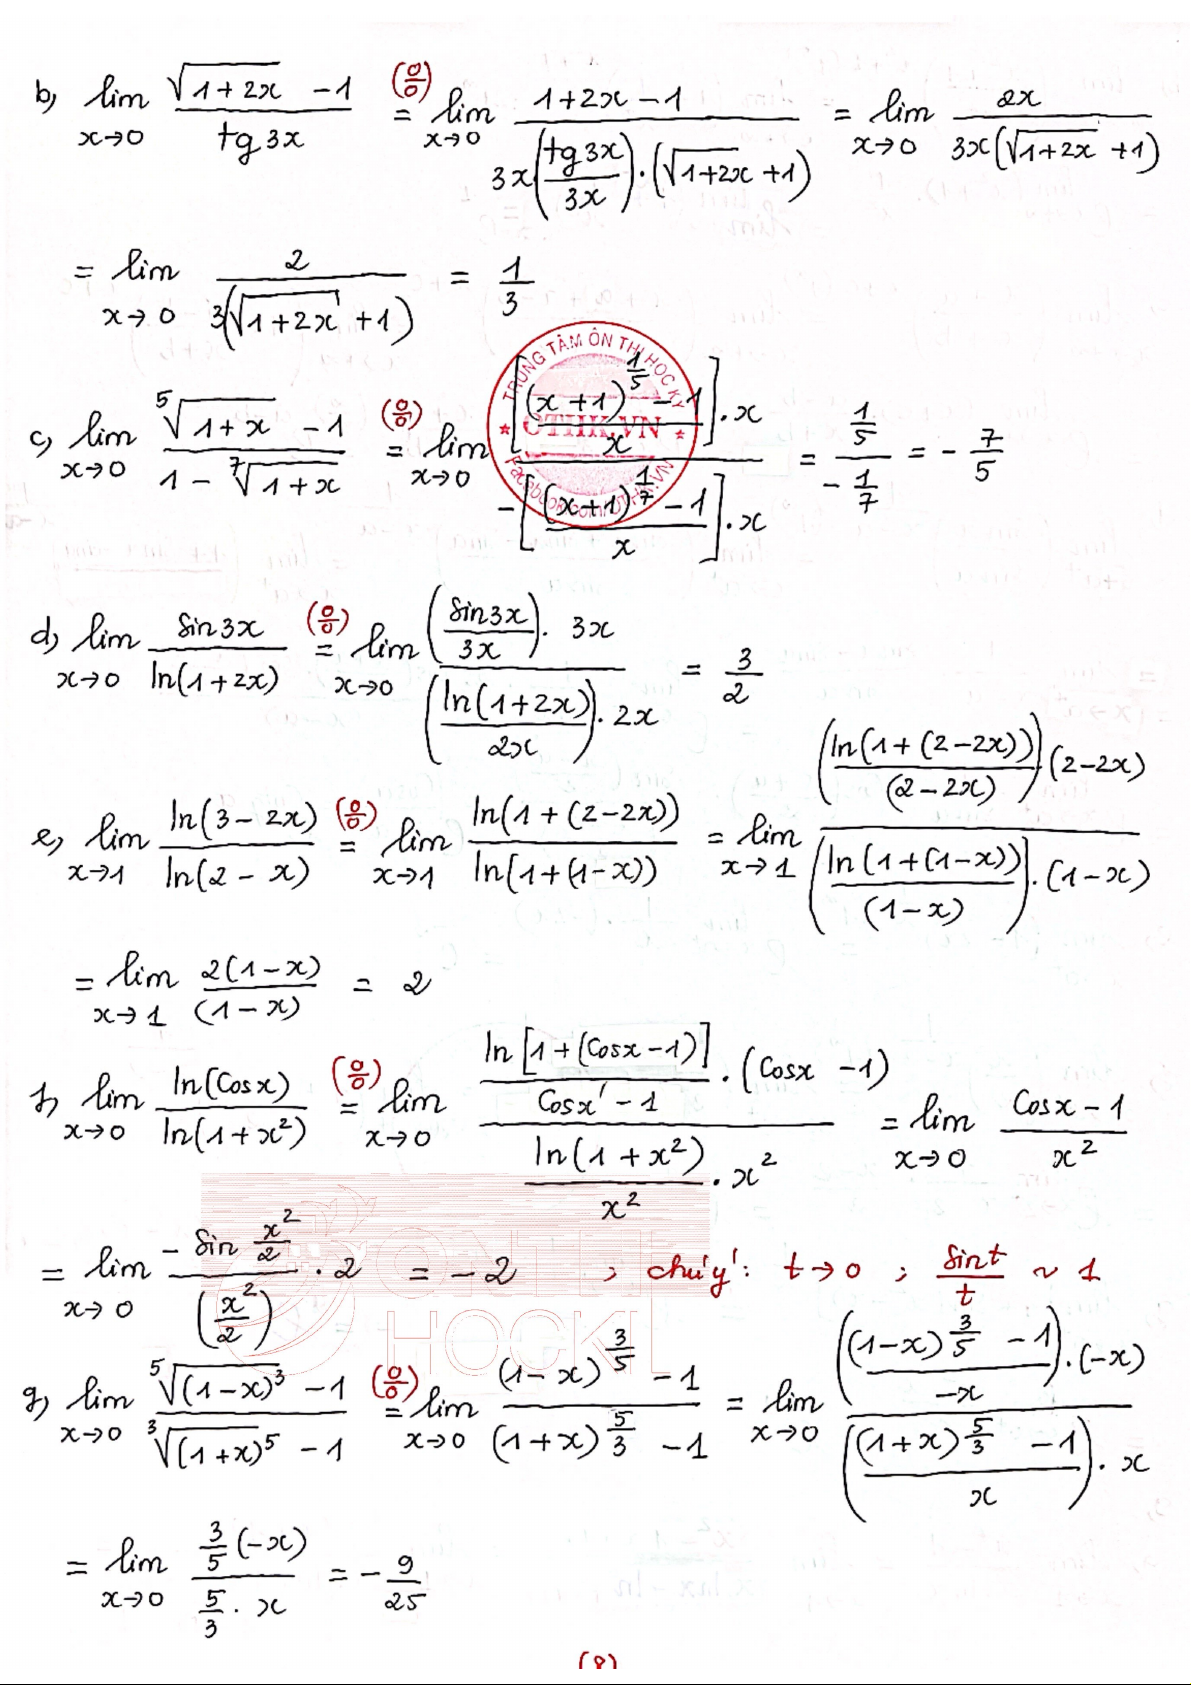 b) lim x→0 (√(1+2x) - 1)/(tg3x) (0/0)= lim x→0 (1+2x-1)/(3x(tg3x/3x)·(√(1+2x)+1)) = lim x→0 2x/(3x(√(1+2x)+1))
= lim x→0 2/(3(√(1+2x)+1)) = 1/3
TRUNG TÂM ÔN THI HỌC KỲ
OTHK.VN
c) lim x→0 (⁵√(1+x) - 1)/(1 - ⁷√(1+x)) (0/0)= lim x→0 ([((x+1)^(1/5) - 1)/x]·x)/(-[((x+1)^(1/7) - 1)/x]·x) = (1/5)/(-1/7) = -7/5
d) lim x→0 sin3x/ln(1+2x) (0/0)= lim x→0 ((sin3x/3x)·3x)/((ln(1+2x)/2x)·2x) = 3/2
e) lim x→1 ln(3-2x)/ln(2-x) (0/0)= lim x→1 ln(1+(2-2x))/ln(1+(1-x)) = lim x→1 ((ln(1+(2-2x))/(2-2x))(2-2x))/((ln(1+(1-x))/(1-x))·(1-x))
= lim x→1 2(1-x)/(1-x) = 2
f) lim x→0 ln(Cosx)/ln(1+x²) (0/0)= lim x→0 ((ln[1+(Cosx-1)]/(Cosx-1))·(Cosx-1))/((ln(1+x²)/x²)·x²) = lim x→0 (Cosx-1)/x²
= lim x→0 (-sin x²/2)/(x²/2)·2 = -2 ; chú ý: t→0 ; sint/t ~ 1
ONTHI
HOCKI
g) lim x→0 (⁵√(1-x)³ - 1)/(³√(1+x)⁵ - 1) (0/0)= lim x→0 ((1-x)^(3/5) - 1)/((1+x)^(5/3) - 1) = lim x→0 ((((1-x)^(3/5) - 1)/(-x))·(-x))/((((1+x)^(5/3) - 1)/x)·x)
= lim x→0 (3/5(-x))/(5/3·x) = -9/25
(8)